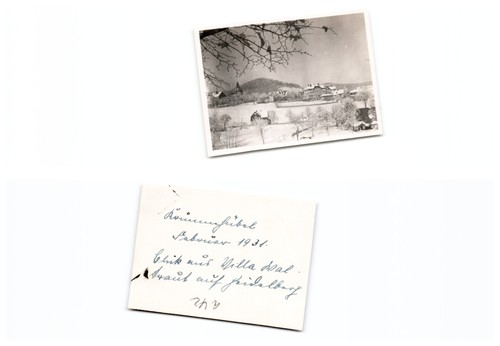 Krummhübel
Februar 1931.
Blick aus Villa Wal-
traut auf Heidelberg